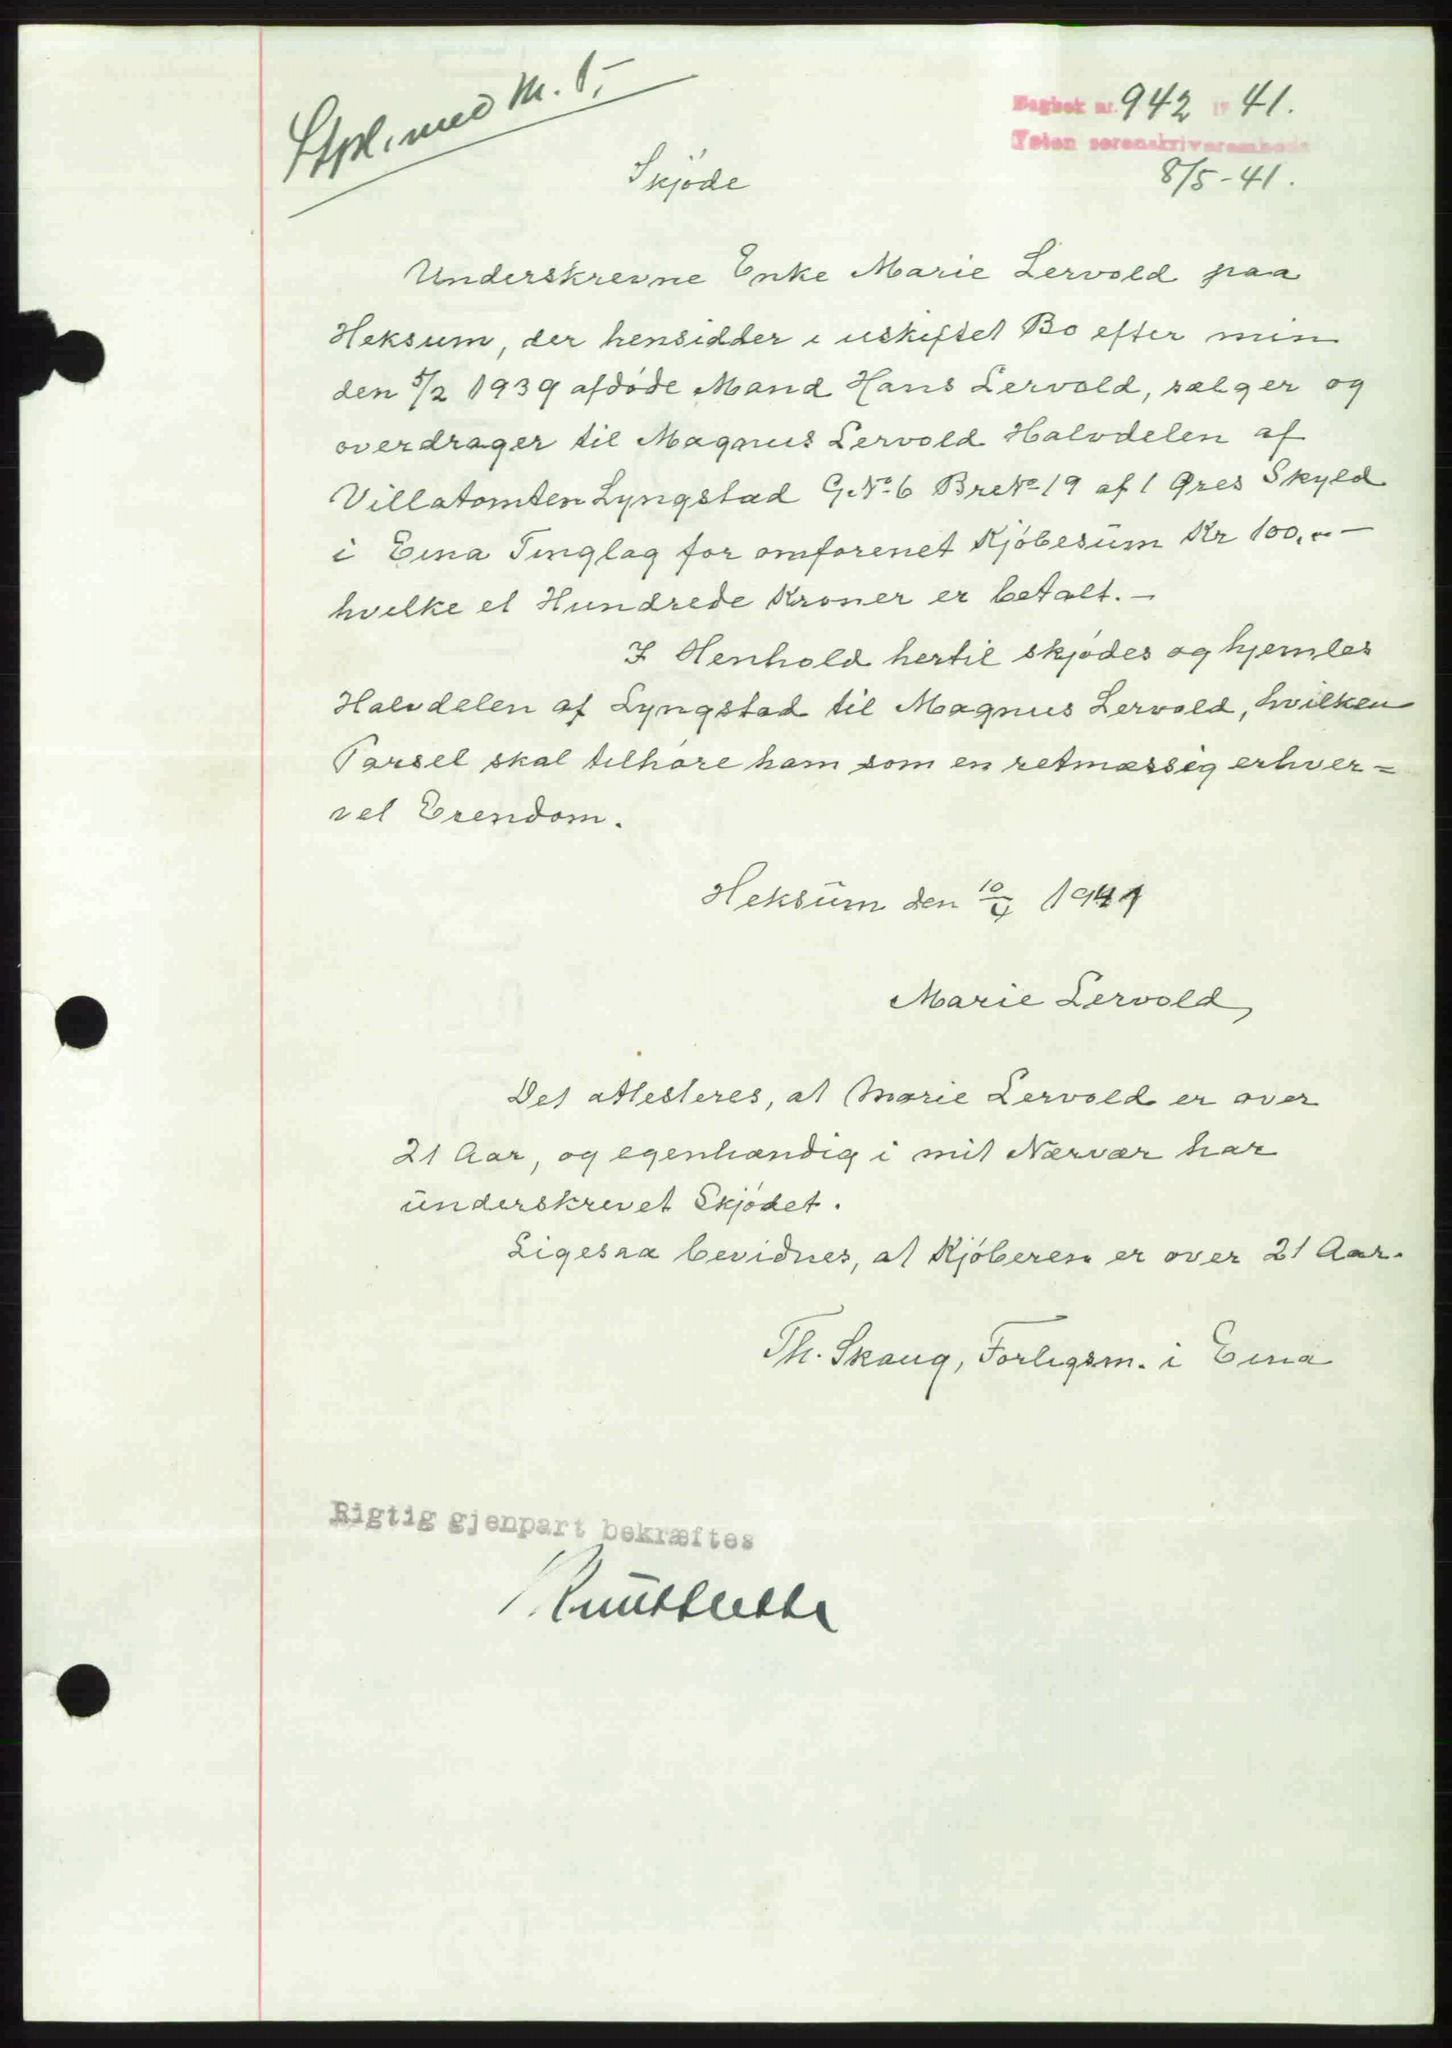 Stpl. med M. 1,-
Dagbok nr. 942 19 41.
Toten sorenskriverembede
8/5-41.
Skjöde
Underskrevne Enke Marie Lervold paa
Heksum, der hensidder i uskiftet Bo efter min
den 5/2 1939 afdöde Mand Hans Lervold, sælger og
overdrager til Magnus Lervold Halvdelen af
Villatomten Lyngstad G.No 6 Br.No 19 af 1 Øres Skyld
i Eina Tinglag for omforenet Kjöbesum Kr 100,-
hvilke et Hundrede Kroner er betalt.-
I Henhold hertil skjödes og hjemles
Halvdelen af Lyngstad til Magnus Lervold, hvilken
Parsel skal tilhöre ham som en retmæssig erhver=
vet Eiendom.
Heksum den 10/4 1941
Marie Lervold,
Det attesteres, at Marie Lervold er over
21 Aar, og egenhændig i mit Nærvær har
underskrevet Skjödet.
Ligesaa bevidnes, at Kjöberen er over 21 Aar.
Th. Skaug, Forligsm. i Eina
Rigtig gjenpart bekræftes